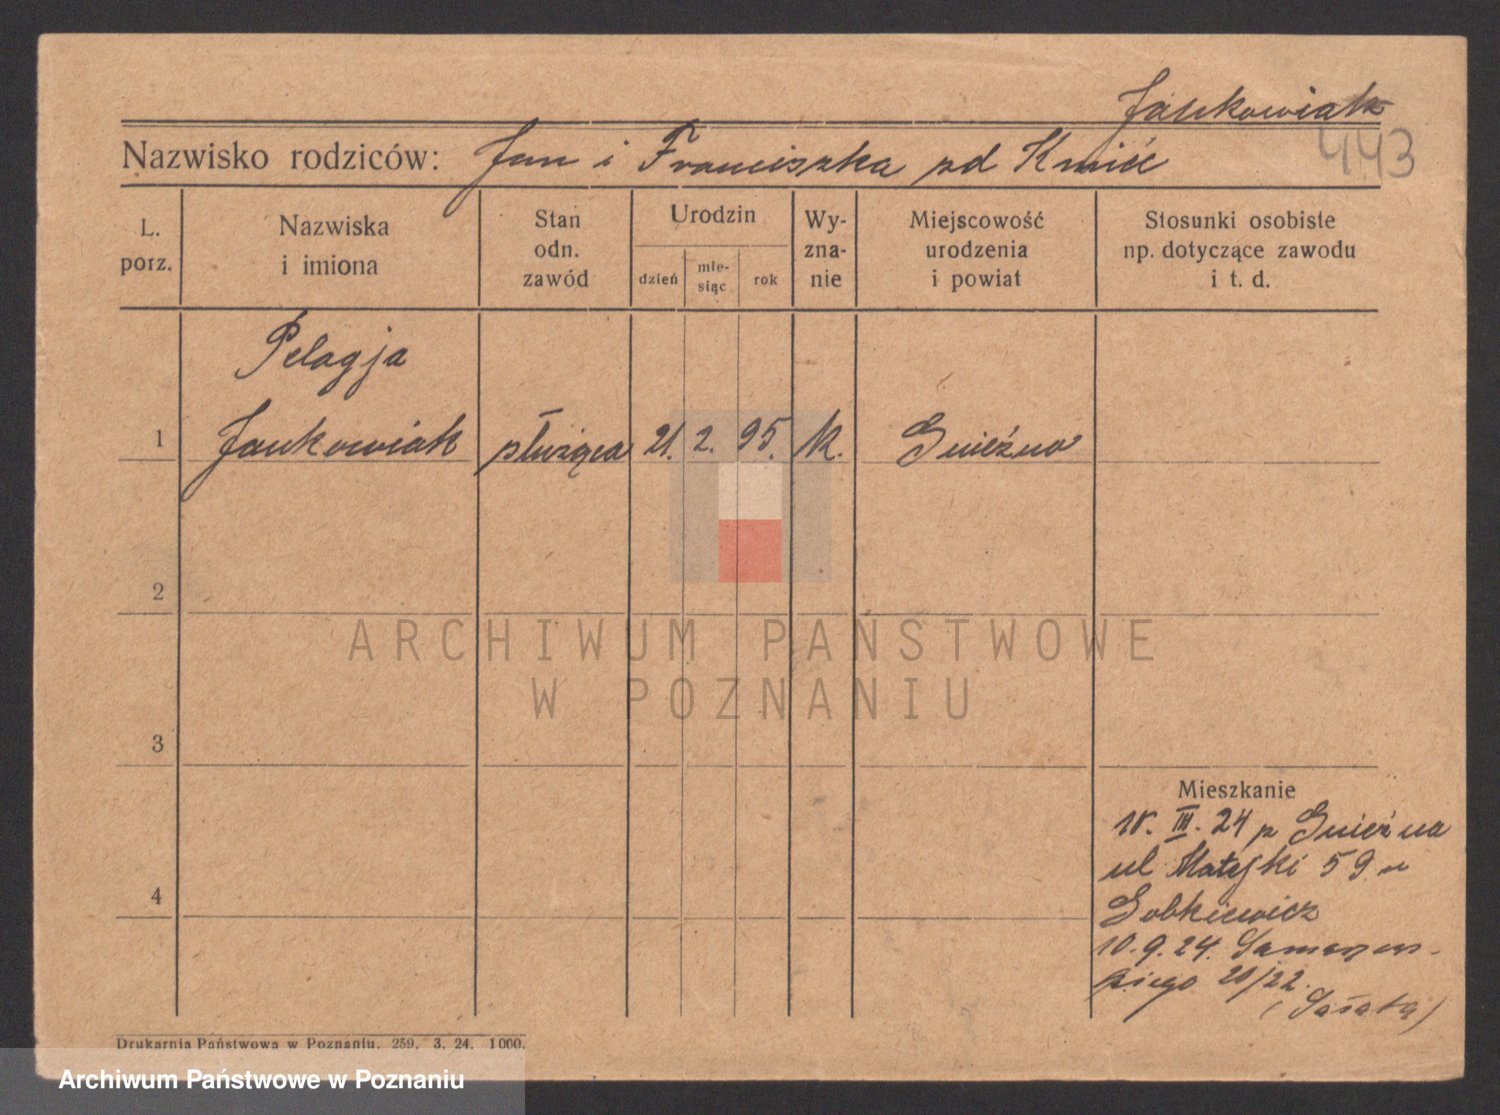 Jankowiak
443
Nazwisko rodziców: Jan i Franciszka zd Kmieć
L. porz.
Nazwiska i imiona
Stan odn. zawód
Urodzin
dzień
mie-siąc
rok
Wy-zna-nie
Miejscowość urodzenia i powiat
Stosunki osobiste np. dotyczące zawodu i t. d.
Pelagja
1 Jankowiak służąca 21. 2. 95. k. Gniezno
2
ARCHIWUM PAŃSTWOWE
W POZNANIU
3
Mieszkanie
III. 24 z Gniezna
ul Matejki 59 u
4
10.9.24.
skiego 20/22.
Drukarnia Państwowa w Poznaniu. 259. 3. 24. 1000.
Archiwum Państwowe w Poznaniu